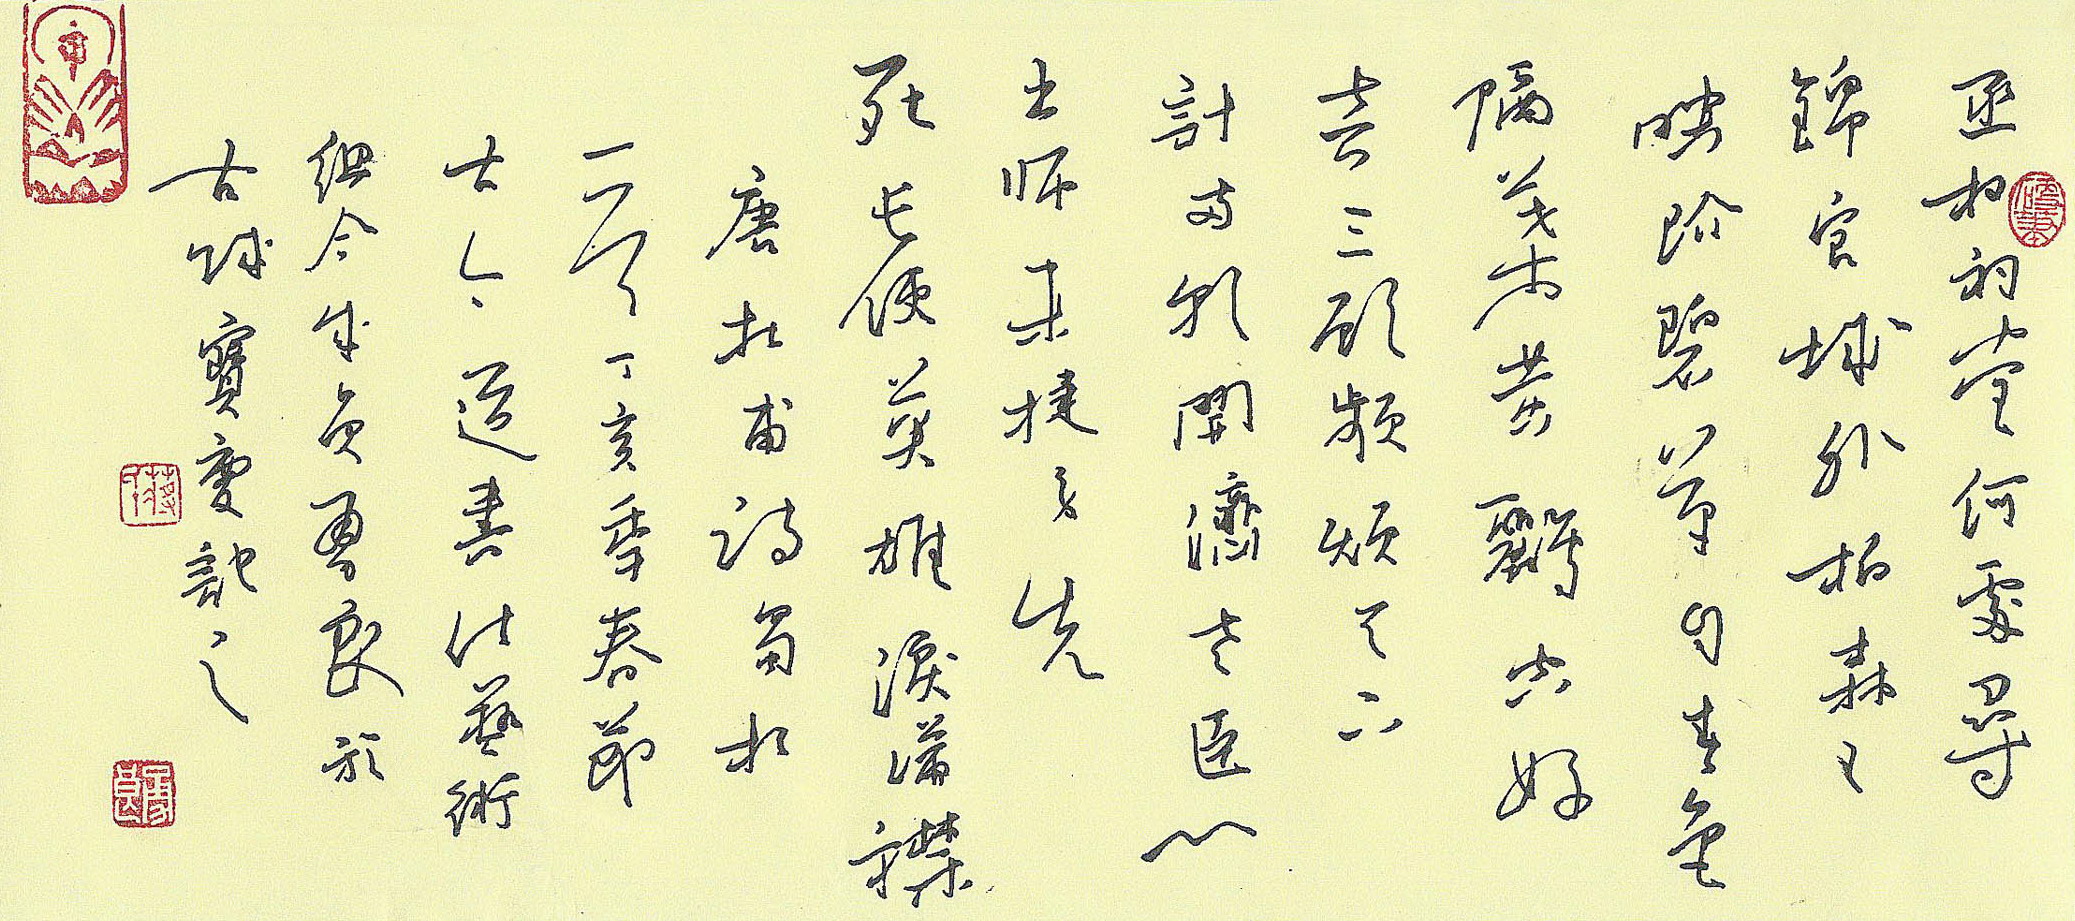 丞相祠堂何處尋
錦官城外柏森々
映阶碧草自春色
隔葉黄鸝空好
音三顧頻煩天下
計兩朝開濟老臣心
出师未捷身先
死长使英雄淚滿襟
唐杜甫詩蜀相
一首丁亥年春節
古今道書法藝術
組合成員勇良於
古城寶慶記之